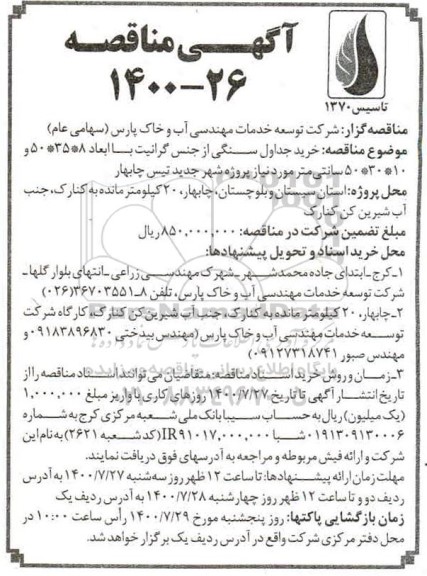 آگهی مناقصه
۱۴۰۰-۲۶
تاسیس ۱۳۷۰
مناقصه گزار: شرکت توسعه خدمات مهندسی آب و خاک پارس (سهامی عام)
موضوع مناقصه: خرید جداول سنگی از جنس گرانیت با ابعاد ۸*۳۵*۵۰ و
۱۰*۳۰*۵۰ سانتی‌متر مورد نیاز پروژه شهر جدید تیس چابهار
محل پروژه: استان سیستان و بلوچستان، چابهار، ۲۰ کیلومتر مانده به کنارک، جنب
آب شیرین کن کنارک
مبلغ تضمین شرکت در مناقصه: ۸۵۰,۰۰۰,۰۰۰ ریال
محل خرید اسناد و تحویل پیشنهادها:
۱-کرج-ابتدای جاده محمدشهر-شهرک مهندسی زراعی-انتهای بلوار گلها-
شرکت توسعه خدمات مهندسی آب و خاک پارس، تلفن ۸-۳۶۷۰۳۵۵۱(۰۲۶)
۲-چابهار، ۲۰ کیلومتر مانده به کنارک، جنب آب شیرین کن کنارک، کارگاه شرکت
توسعه خدمات مهندسی آب و خاک پارس (مهندس بیدختی ۰۹۱۸۳۸۹۶۸۳۰ و
مهندس صبور ۰۹۱۲۷۳۱۸۷۴۱)
۳-زمان و روش خرید اسناد مناقصه: متقاضیان می توانند اسناد مناقصه را از
تاریخ انتشار آگهی تا تاریخ ۱۴۰۰/۷/۲۷ روزهای کاری با واریز مبلغ ۱,۰۰۰,۰۰۰
(یک میلیون) ریال به حساب سیبا بانک ملی شعبه مرکزی کرج به شماره
۰۱۹۱۳۰۹۱۳۰۰۰۶ شبا IR۹۱۰۱۷,۰۰۰,۰۰۰ (کد شعبه ۲۶۲۱) به نام این
شرکت و ارائه فیش مربوطه و مراجعه به آدرسهای فوق دریافت نمایند.
مهلت زمان ارائه پیشنهادها: تا ساعت ۱۲ ظهر روز سه شنبه ۱۴۰۰/۷/۲۷ به آدرس
ردیف دو و تا ساعت ۱۲ ظهر روز چهارشنبه ۱۴۰۰/۷/۲۸ به آدرس ردیف یک
زمان بازگشایی پاکتها: روز پنجشنبه مورخ ۱۴۰۰/۷/۲۹ رأس ساعت ۱۰:۰۰ در
محل دفتر مرکزی شرکت واقع در آدرس ردیف یک برگزار خواهد شد.